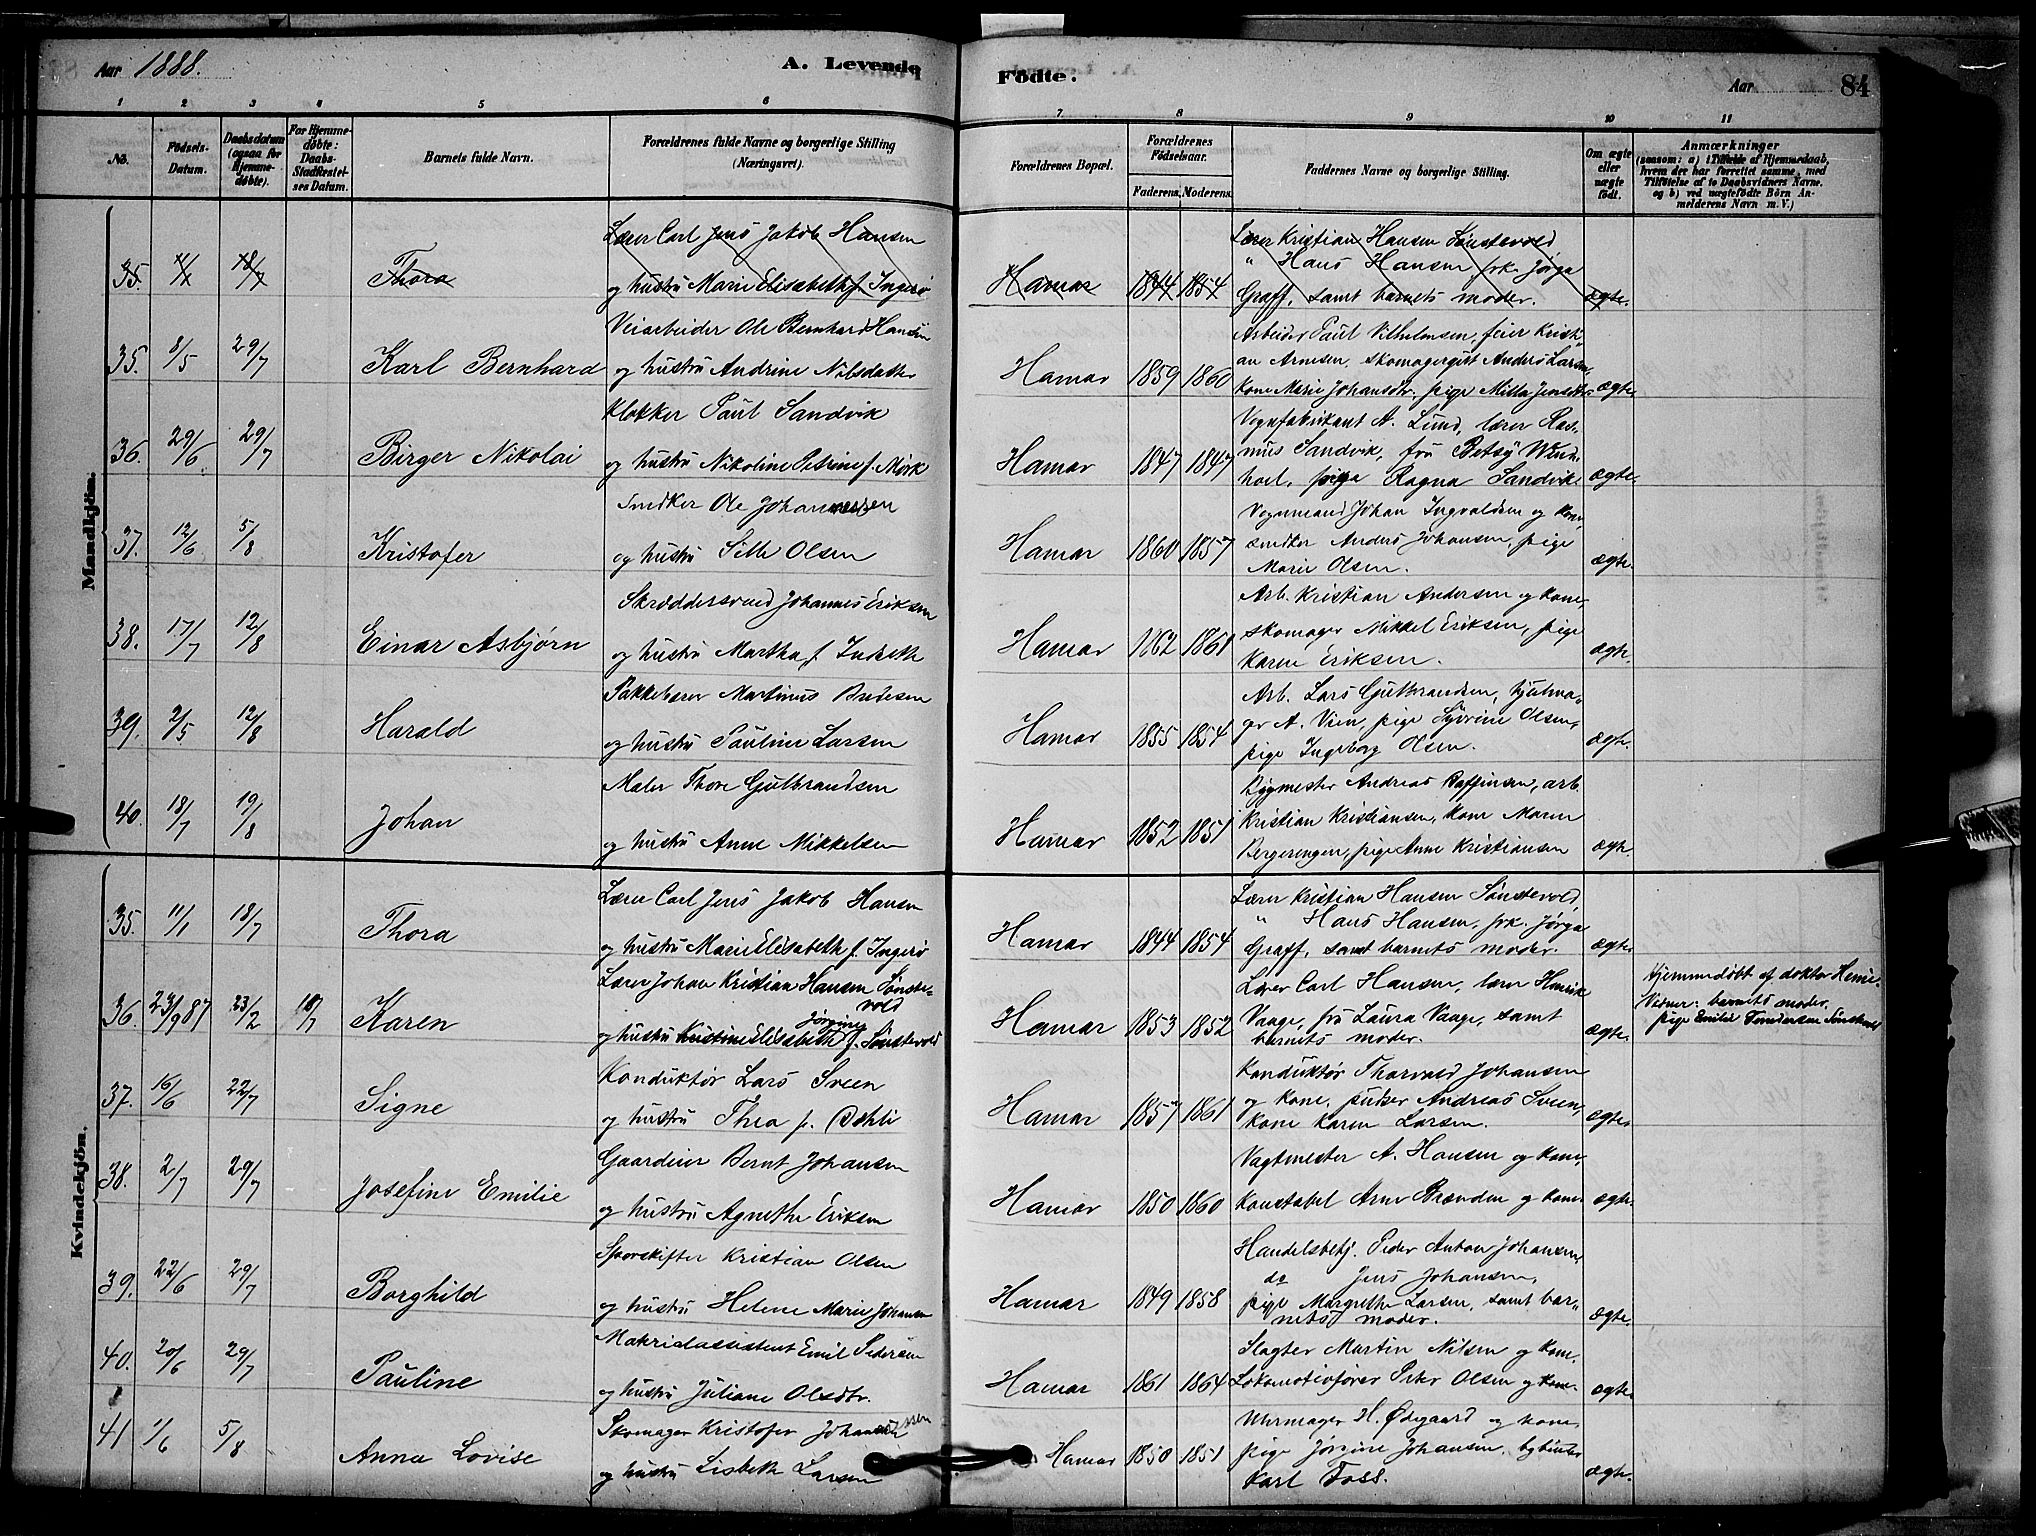 Aar 1888.
A. Levende
Fødte.
Aar
84
1 2 3 4 5 6 7 8 9 10 11
No.
Fødsels-Datum.
Daabsdatum (ogsaa for Hjemmedøbte).
For Hjemmedøbte: Daabs-Stadfæstelses Datum.
Barnets fulde Navn.
Forældrenes fulde Navne og borgerlige Stilling (Næringsvei).
Forældrenes Bopæl.
Forældrenes Fødselsaar.
Faderens. Moderens.
Faddernes Navne og borgerlige Stilling.
Om ægte eller uægte født.
Anmærkninger
(saasom: a) i Tilfælde af Hjemmedaab, hvem der har forrettet samme, med Tilføielse af to Daabsvidners Navne, og b) ved uægtefødte Børn Anmelderens Navn m. V.)
Mandkjön.
35. 11/1 18/7 Thora
Lærer Carl Jens Jakob Hansen
og hustru Marie Elisabeth f. Ingerø
Hamar 1844 1854
Lærer Kristian Hansen Sønstevold
" Hans Hansen, frk. Jørga
Graff, samt barnets moder. ægte.
35. 8/5 29/7 Karl Bernhard
Veiarbeider Ole Bernhard Hansen
og hustru Andrine Nilsdatter
Hamar 1859 1860
Arbeider Paul Vilhelmsen, feier Kristi-
an Arnesen, skomagergut Anders Larsen,
kone Marie Johansdtr. pige Milla Jensdtr. ægte.
36. 29/6 29/7 Birger Nikolai
Klokker Paul Sandvik
og hustru Nikoline Petrine f. Mørk
Hamar 1847 1847
Vognfabrikant A. Lund, lærer Ras-
mus Sandvik, fru Betsy
pige Ragna Sandvik ægte.
37. 12/6 5/8 Kristofer
Snedker Ole Johannessen
og hustru Olsen
Hamar 1860 1857
Vognmand Johan Ingvaldsen og kone,
snedker Anders Johansen, pige
Marie Olsen. ægte.
38. 17/7 12/8 Einar Asbjørn
Skræddersvend Johannes Eriksen
og hustru Martha f. Indseth
Hamar 1862 1861
Arb. Kristian Andersen og kone,
skomager Mikkel Eriksen, pige
Karen Eriksen. ægte.
39. 2/5 12/8 Harald
Pakkebærer Martinus Bredesen
og hustru Pauline Larsen
Hamar 1855 1854
Arb. Lars Gulbrandsen, hjulma-
ger A. Vien, pige Syverine Olsen,
pige Ingeborg Olsen. ægte.
40. 18/7 19/8 Johan
Maler Thore Gulbrandsen
og hustru Anne Mikkelsen
Hamar 1852 1851
Bygmester Andreas arb.
Kristian Kristiansen, kone Maren
Bergerengen, pige Anne Kristiansen ægte.
Kvindekjön.
35. 11/1 18/7 Thora
Lærer Carl Jens Jakob Hansen
og hustru Marie Elisabeth f. Ingerø
Hamar 1844 1854
Lærer Kristian Hansen Sønstevold,
" Hans Hansen, frk. Jørga
Graff, samt barnets moder. ægte
36. 23/9 87 23/2 18/7 Karen
Lærer Johan Kristian Hansen Sønste-
vold
og hustru Kristine Elisabeth Jørgine f. Sønstevold
Hamar 1853 1852
Lærer Carl Hansen, lærer Henrik
Vaage, fru Laura Vaage, samt
barnets moder. ægte.
Hjemmedøbt af doktor
Vidner: barnets moder,
pige Emilie Sønstevold
37. 16/6 22/7 Signe
Konduktør Lars Sveen
og hustru Thea f. Dahli
Hamar 1857 1861
Konduktør Thorvald Johansen
og kone, pudser Andreas Sveen,
kone Karen Larsen. ægte
38. 2/7 29/7 Josefine Emilie
Gaardeier Bernt Johansen
og hustru Agnethe Eriksen
Hamar 1850 1860
Vagtmester A. Hansen og kone,
Konstabel Arne Brænden og kone ægte.
39. 22/6 29/7 Borghild
Sporskifter Kristian Olsen
og hustru Helene Marie Johansen
Hamar 1849 1858
Handelsbetj. Peder Anton Johansen,
do Jens Johansen,
pige Margrethe Larsen, samt bar-
nets moder. ægte.
40. 20/6 29/7 Pauline
Materialassistent Emil Pedersen
og hustru Juliane Olsdtr.
Hamar 1861 1864
Slagter Martin Nilsen og kone,
Lokomotivfører Peter Olsen og kone ægte.
41 1/6 5/8 Anna Lovise
Skomager Kristofer Johannessen
og hustru Lisbeth Larsen
Hamar 1850 1851
Uhrmager H. Ødegaard og kone,
pige Jørgine Johansen,
Karl Foss. ægte.